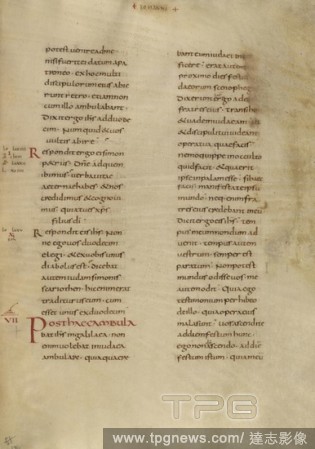 potest venire ad me
nisi fuerit ei datum a pa
tre meo · ex hoc multi
discipulorum eius abie
runt retro · et iam non
cum illo ambulabant
Dixit ergo ihs ad duode
cim · Numquid et vos
vultis abire
Respondit ergo ei simon
petrus · Dne ad quem
ibimus verba vitae
aeternae habes · et nos
credidimus et cognovi
mus · quia tu es xps
filius di
Respondit eis ihs · Non
ne ego vos duodecim
elegi · et ex vobis unus
diabolus est · dicebat
autem iudam simonis
scariothen · hic enim erat
traditurus eum · cum
esset unus ex duodecim
VII
Post haec ambula
bat ihs in galilaea · non
enim volebat in iudaea
ambulare · quia quaere
bant eum iudaei inter
ficere · erat autem in
proximo dies festus iu
daeorum scenophegia
Dixerunt ergo ad eum
fratres eius · transi hinc
et vade in iudaeam ut
et discipuli tui videant
opera tua quae facis
nemo quippe in occulto
quid facit · et quaerit
ipse in palam esse · si haec
facis manifesta te ipsum
mundo · neque enim fra
tres eius credebant in eum
Dicit ergo eis ihs · tem
pus meum nondum ad
venit · tempus autem
vestrum semper est
paratum · Non potest
mundus odisse vos · me
autem odit · Quia ego
testimonium perhibeo
de illo · quia opera eius
mala sunt · vos ascendite
ad diem festum hunc
ego non ascendo · ad diem
festum istum · quia meum
TPG
www.tpgnews.com / 達志影像